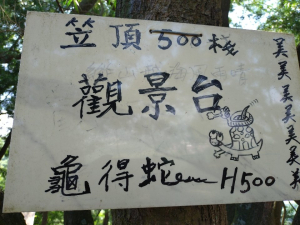 笠頂500棧
觀景台
龜得蛇 H500
美美美美美美